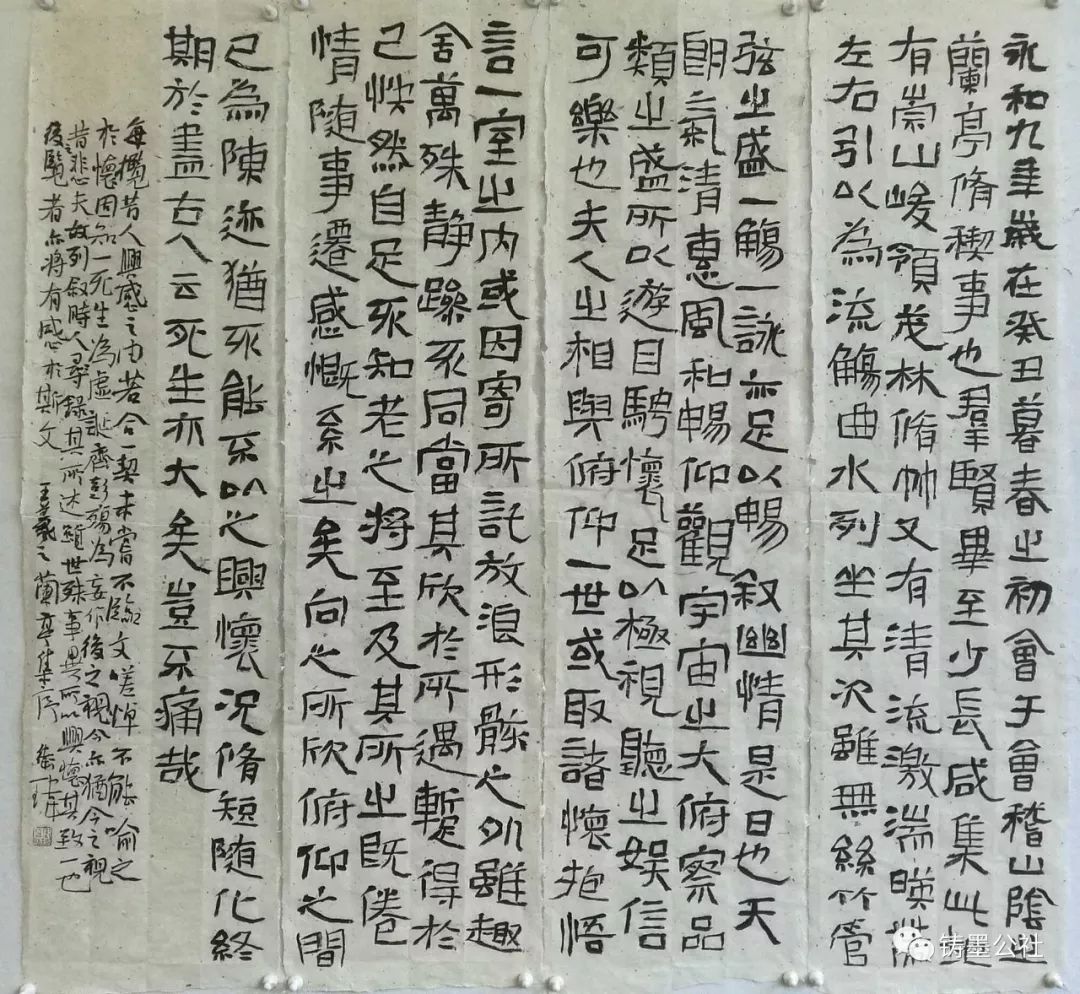 永和九年歲在癸丑暮春之初會于會稽山陰之
蘭亭脩稧事也羣賢畢至少長咸集此地
有崇山峻領茂林脩竹又有清流激湍暎帶
左右引以為流觴曲水列坐其次雖無絲竹管
弦之盛一觴一詠亦足以暢敘幽情是日也天
朗氣清惠風和暢仰觀宇宙之大俯察品
類之盛所以遊目騁懷足以極視聽之娛信
可樂也夫人之相與俯仰一世或取諸懷抱悟
言一室之內或因寄所託放浪形骸之外雖趣
舍萬殊靜躁不同當其欣於所遇暫得於
己怏然自足不知老之將至及其所之既倦
情隨事遷感慨系之矣向之所欣俯仰之間
已為陳迹猶不能不以之興懷況脩短隨化終
期於盡古人云死生亦大矣豈不痛哉
每攬昔人興感之由若合一契未嘗不臨文嗟悼不能喻之
於懷固知一死生為虛誕齊彭殤為妄作後之視今亦猶今之視
昔悲夫故列敘時人錄其所述雖世殊事異所以興懷其致一也
後之覽者亦將有感於斯文 王羲之蘭亭集序
铸墨公社